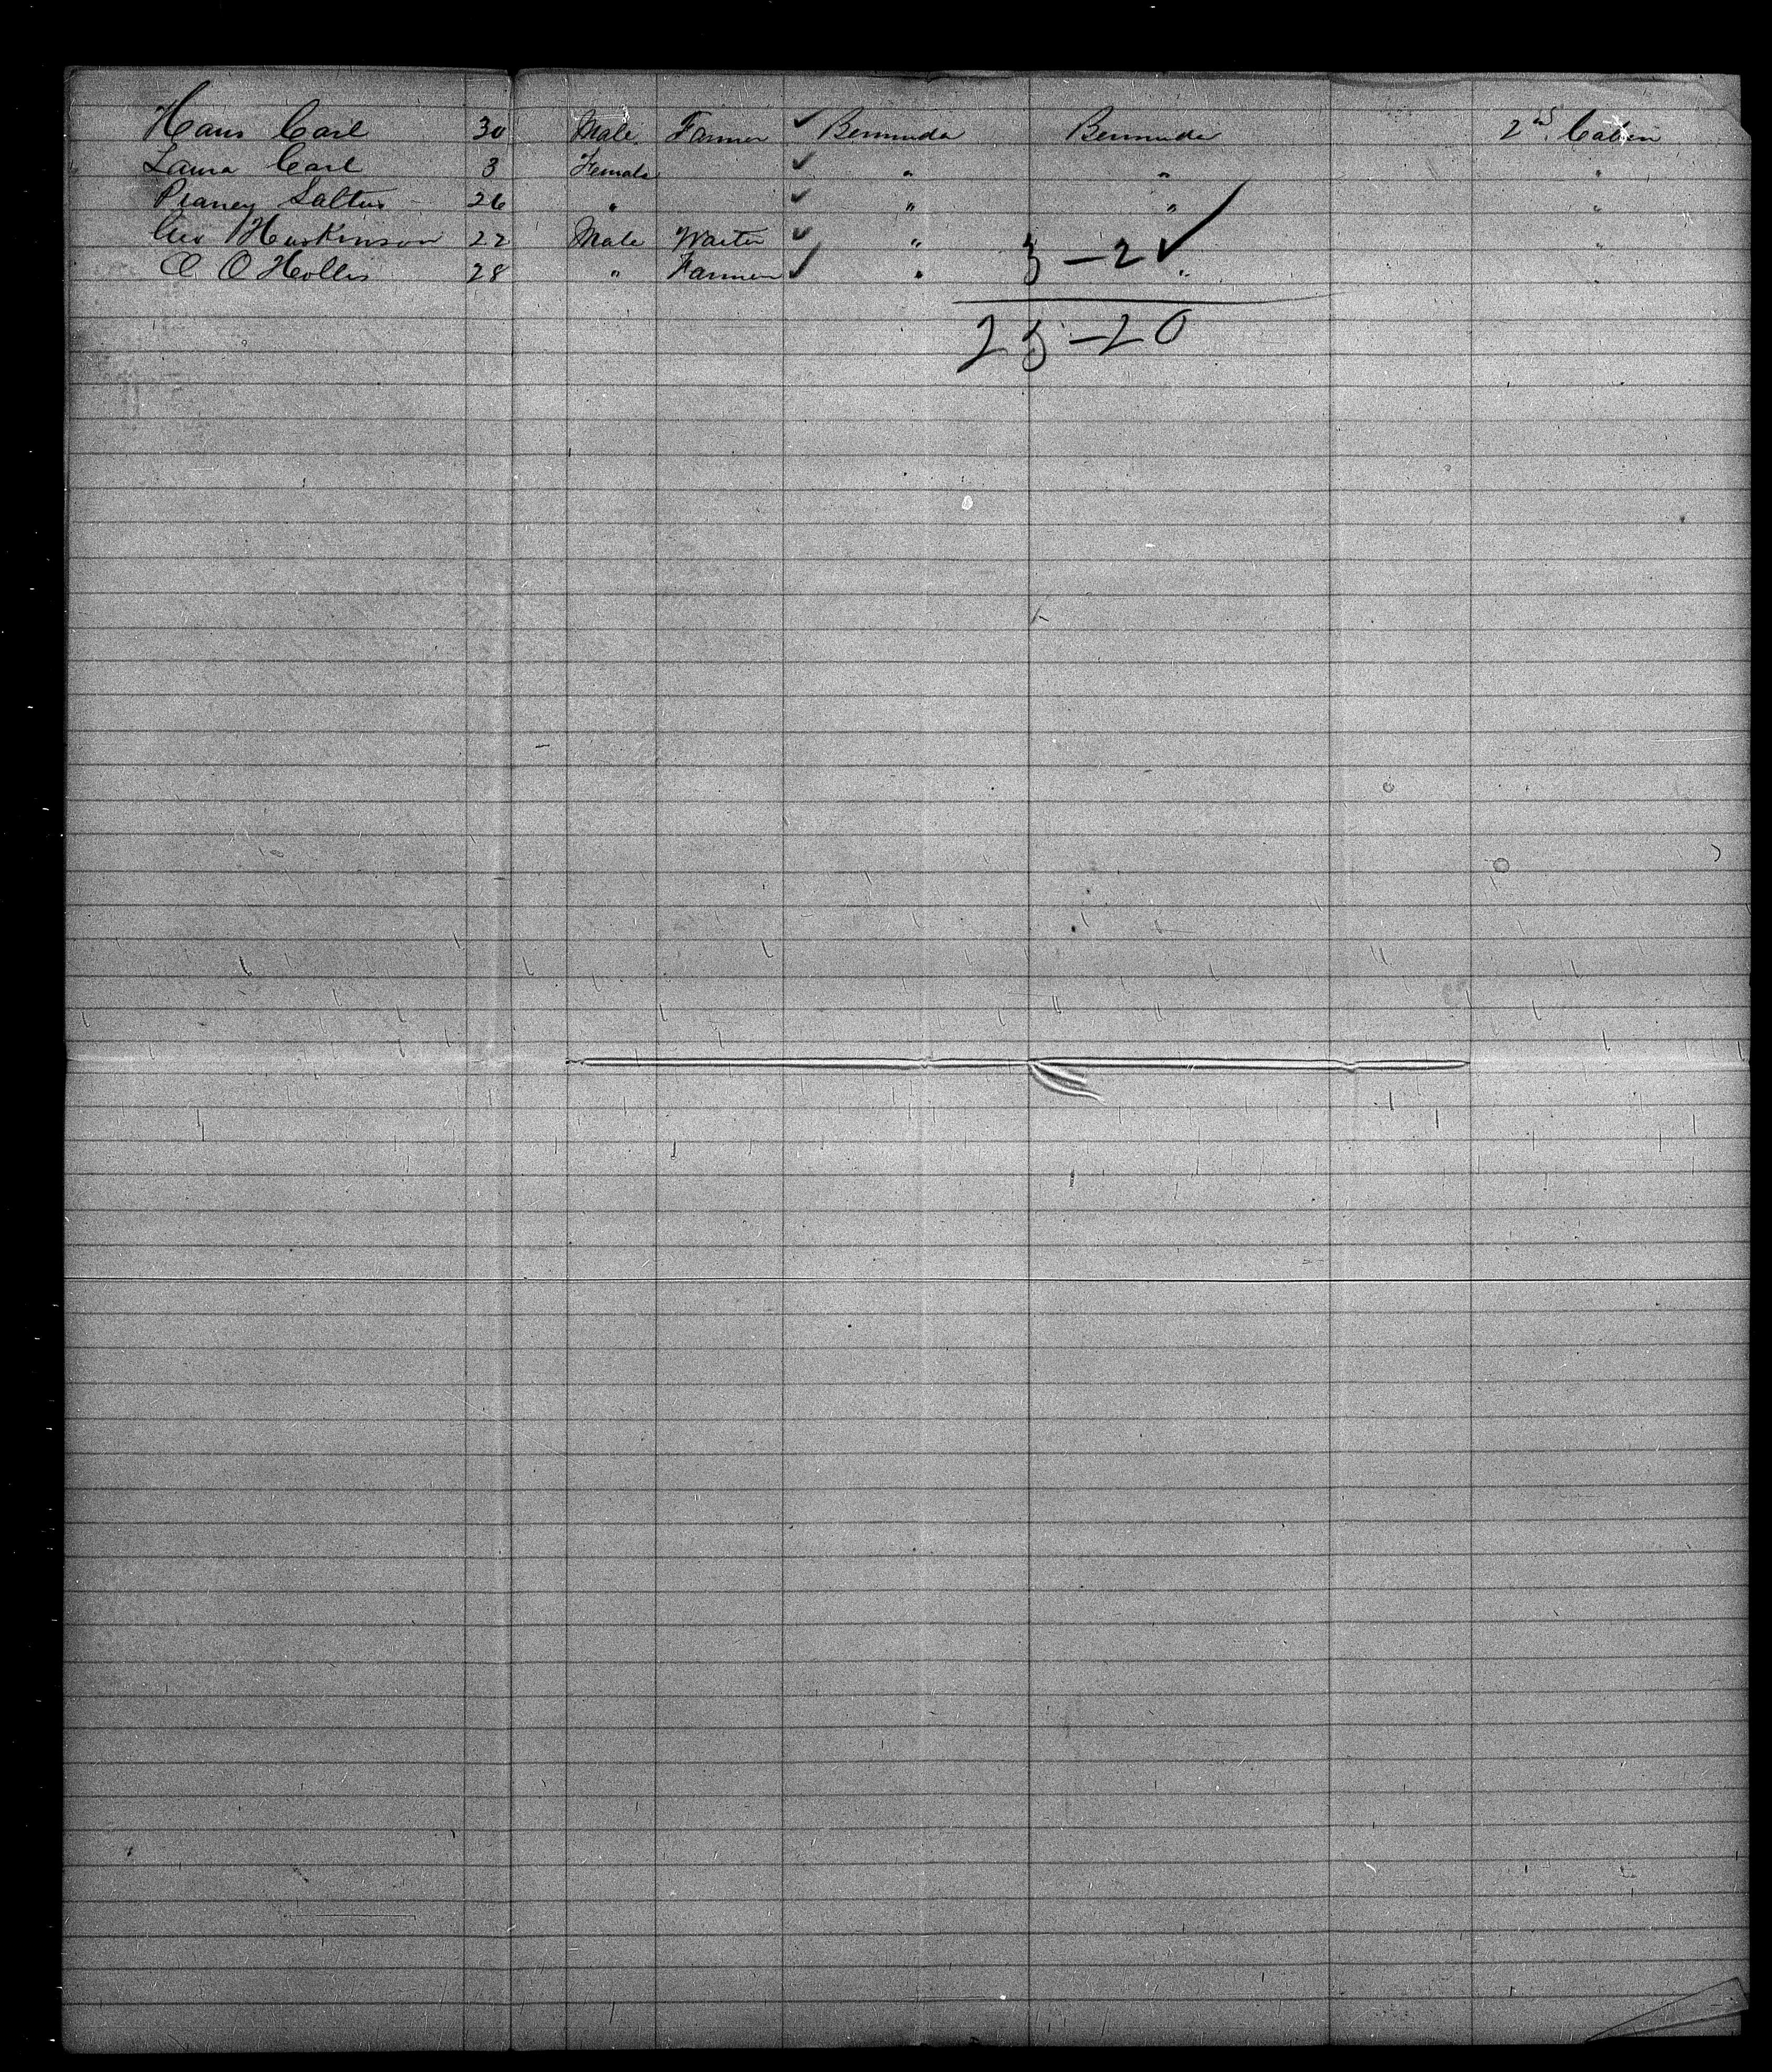 Hans Carl 30 Male Farmer ✓ Bermuda Bermuda 2nd Cabin
Laura Carl 3 Female ✓ " " "
Saltus 26 " ✓ " " "
Geo Huskinson 22 Male Waiter ✓ " "
3 – 2 ✓
O Hollis 28 " Farmer ✓ " " "
23 – 20